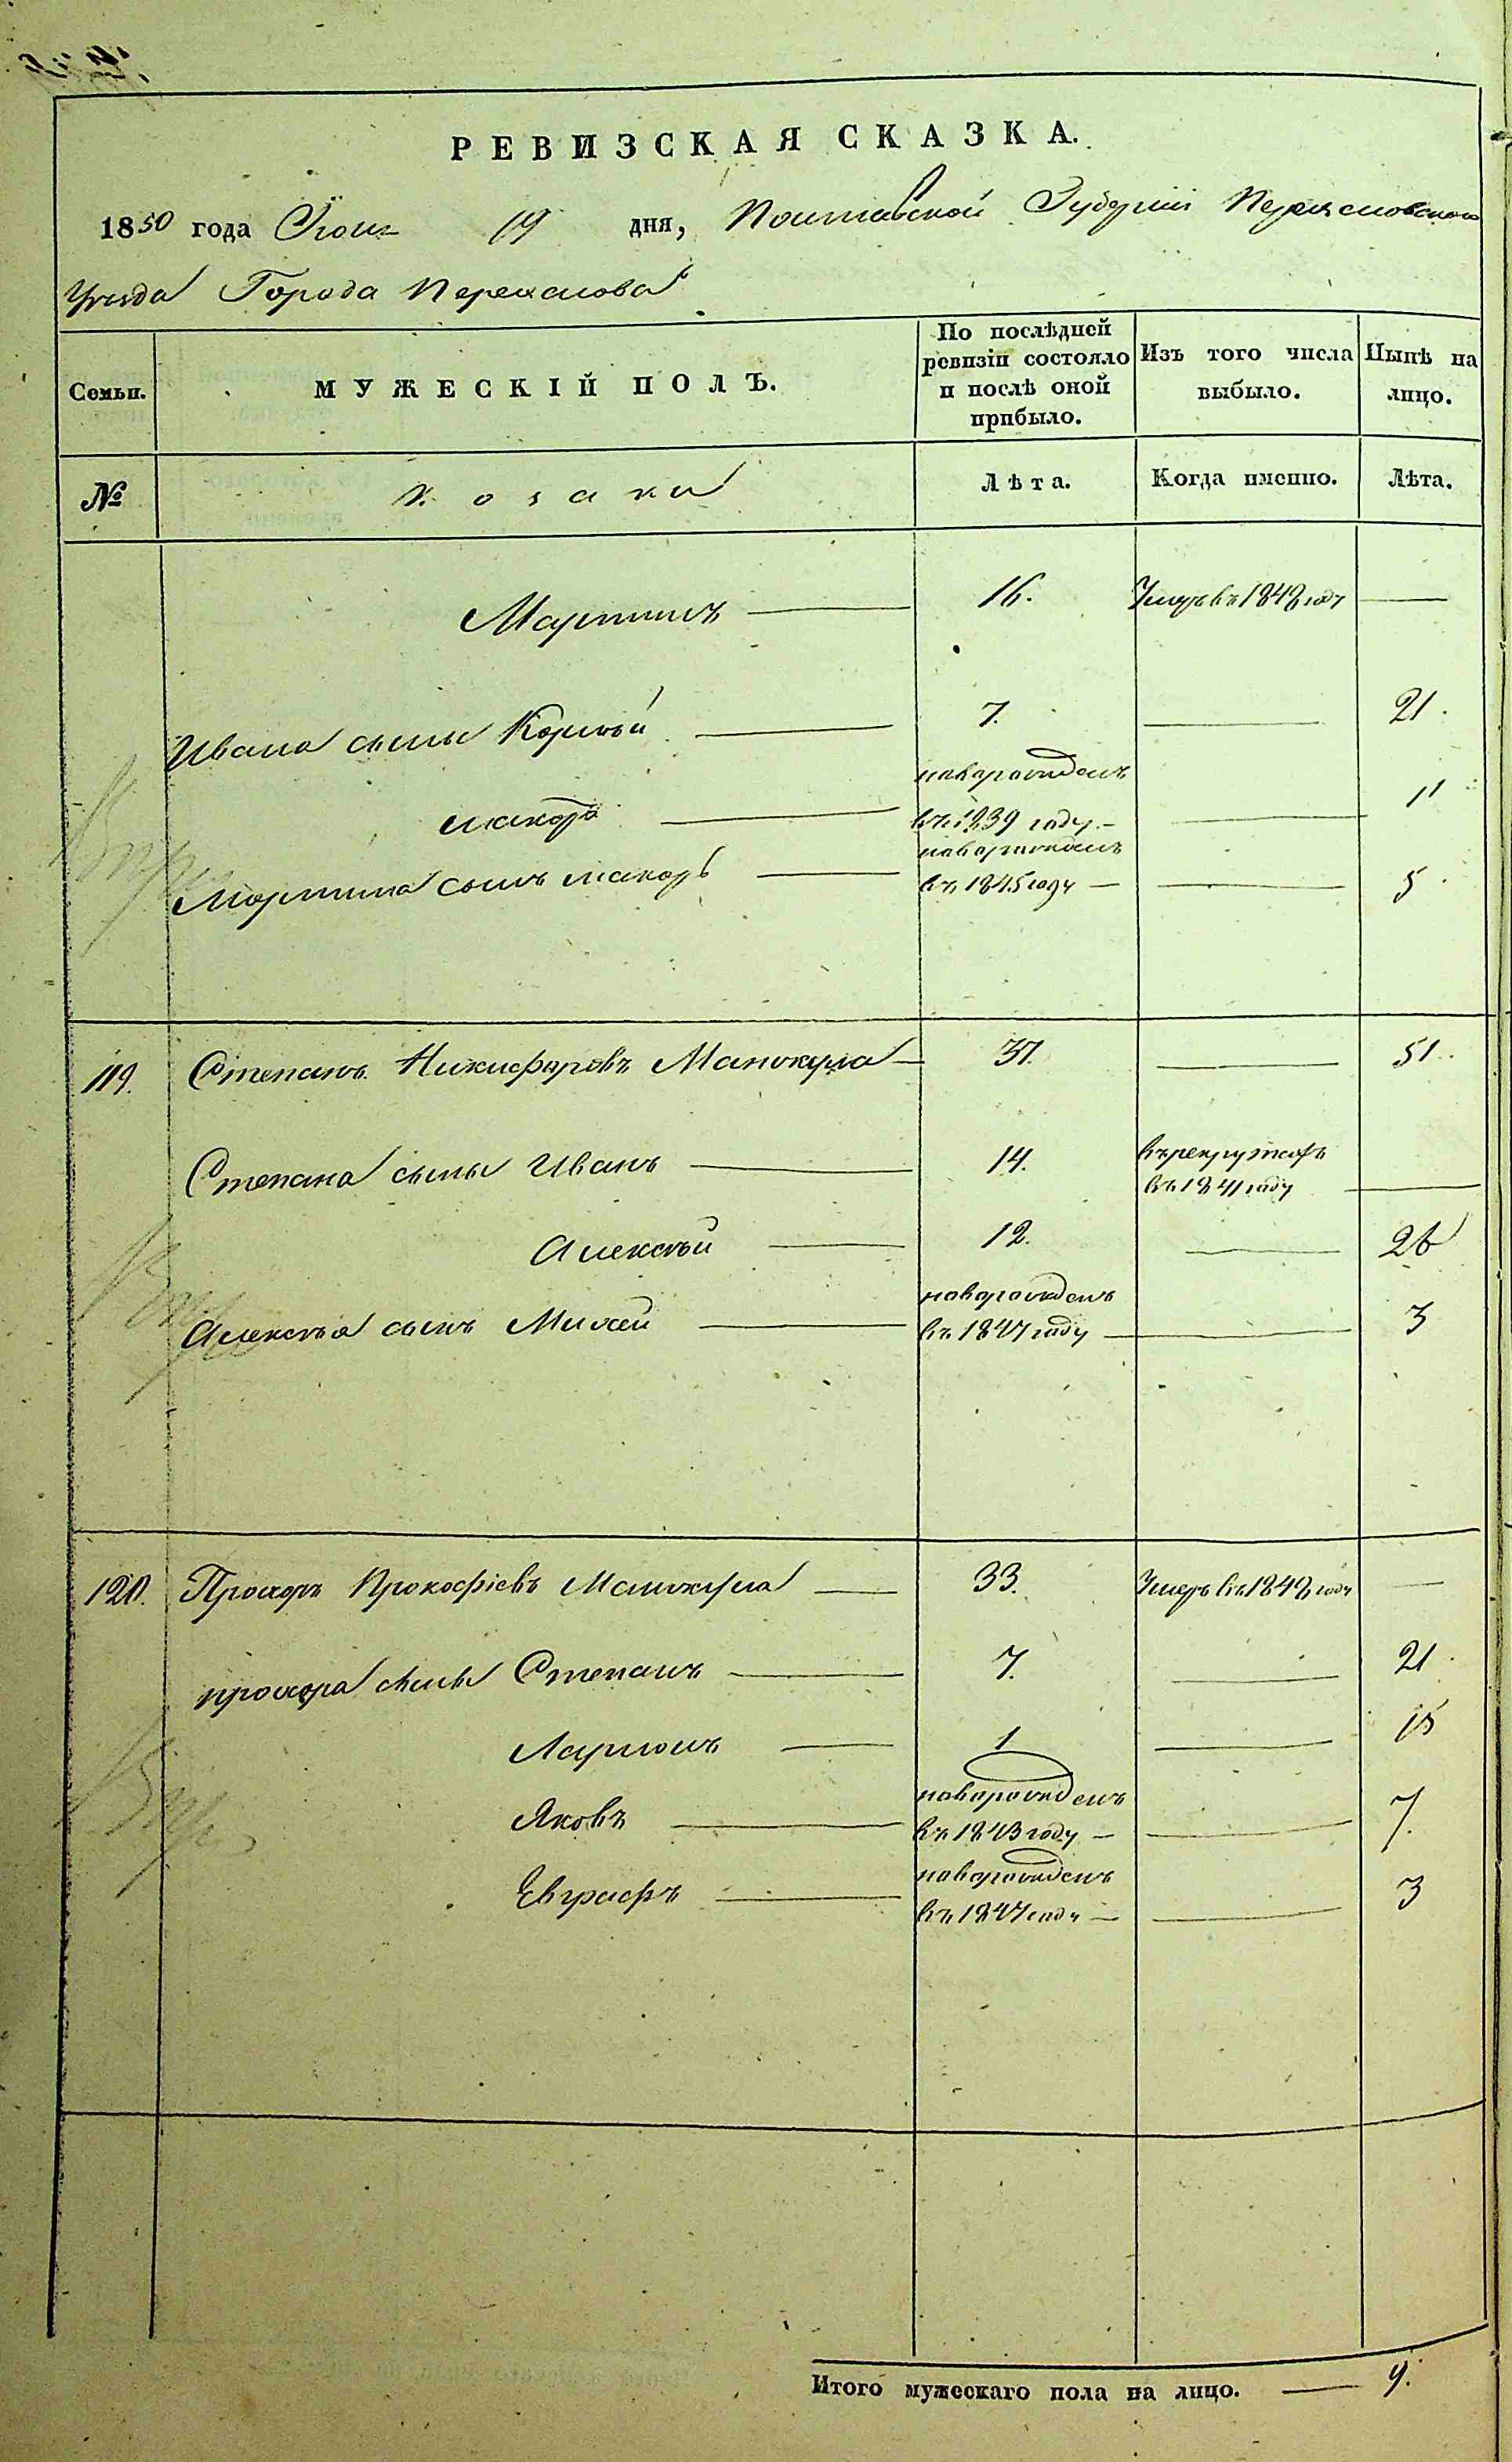 РЕВИЗСКАЯ СКАЗКА.
1850 года Іюня 19 дня, Полтавской Губерніи Переяславскаго
Уѣзда Города Переяслова
Семьи. МУЖЕСКІЙ ПОЛЪ. По послѣдней ревизіи состояло и послѣ оной прибыло. Изъ того числа выбыло. Нынѣ на лицо.
№ Козаки Лѣта. Когда именно. Лѣта.
Мартинъ 16. Умеръ въ 1848 году
Ивана сыны Корнѣй 7. 21.
новорожденъ
въ 1839 году 11
новорожденъ
Мартина сынъ Макаръ въ 1845 году 5
119. Степанъ Никифоровъ Манжула 37. 51.
Степана сыны Иванъ 14. въ рекрутахъ
въ 1841 году
Алексѣй 12. 26
новорожденъ
Алексѣя сынъ въ 1847 году 3
120. Прохоръ Прокофіевъ Манжула 33. Умеръ въ 1848 году
Прохора сыны Степанъ 7. 21
Ларіонъ 1 15
новорожденъ
Яковъ въ 1843 году 7.
новорожденъ
Евграфъ въ 1847 году 3
Впр
Итого мужескаго пола на лицо. 9.